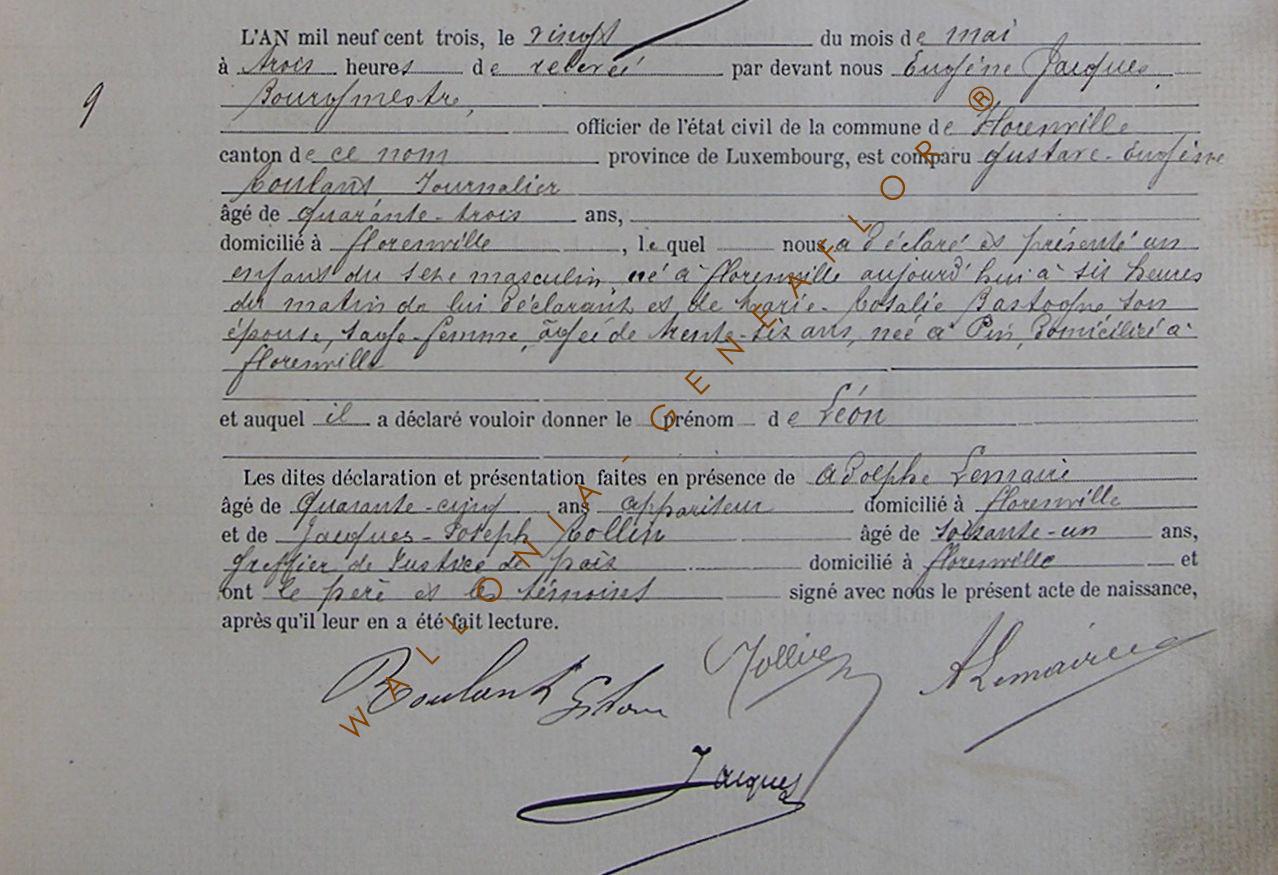 L'AN mil neuf cent trois, le vingt du mois de mai
à trois heures de relevée par devant nous Eugène Jacques,
Bourgmestre,
9
officier de l'état civil de la commune de Florenville
canton de ce nom province de Luxembourg, est comparu Gustave-Eugène
Journalier
âgé de quarante-trois ans,
domicilié à Florenville, lequel nous a déclaré et présenté un
enfant du sexe masculin, né à Florenville aujourd'hui à six heures
du matin de lui déclarant et de Marie-Rosalie Bastogne son
épouse, sage-femme, âgée de trente-six ans, née à Pin, Domiciliée à
Florenville
et auquel il a déclaré vouloir donner le prénom de Léon
Les dites déclaration et présentation faites en présence de Adolphe Lemaire
âgé de Quarante-cinq ans appariteur domicilié à Florenville
et de Jacques-Joseph Collin âgé de Soixante-un ans,
Greffier de Justice de paix domicilié à Florenville et
ont le père et les témoins signé avec nous le présent acte de naissance,
après qu'il leur en a été fait lecture.
Collin
A Lemaire
Jacques
WALLONIA-GENEAFLOR®